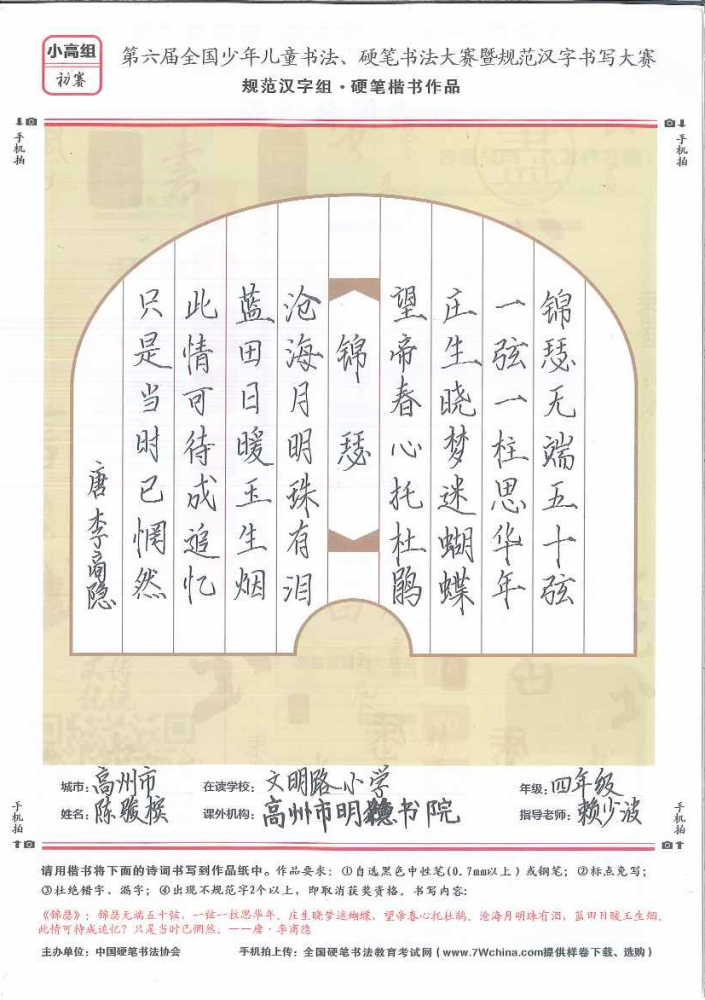 小高组
初赛
第六届全国少年儿童书法、硬笔书法大赛暨规范汉字书写大赛
规范汉字组·硬笔楷书作品
手机拍
手机拍
锦瑟无端五十弦
一弦一柱思华年
庄生晓梦迷蝴蝶
望帝春心托杜鹃
锦瑟
沧海月明珠有泪
蓝田日暖玉生烟
此情可待成追忆
只是当时已惘然
唐李商隐
城市：高州市 在读学校：文明路小学 年级：四年级
姓名：陈骏 课外机构：高州市明德书院 指导老师：赖少波
手机拍
手机拍
请用楷书将下面的诗词书写到作品纸中。作品要求：①自选黑色中性笔(0.7mm以上)或钢笔；②标点免写；
③杜绝错字、漏字；④出现不规范字2个以上，即取消获奖资格。书写内容：
《锦瑟》：锦瑟无端五十弦，一弦一柱思华年。庄生晓梦迷蝴蝶，望帝春心托杜鹃。沧海月明珠有泪，蓝田日暖玉生烟。
此情可待成追忆？只是当时已惘然。——唐·李商隐
主办单位：中国硬笔书法协会 手机拍上传：全国硬笔书法教育考试网（www.7Wchina.com提供样卷下载、选购）